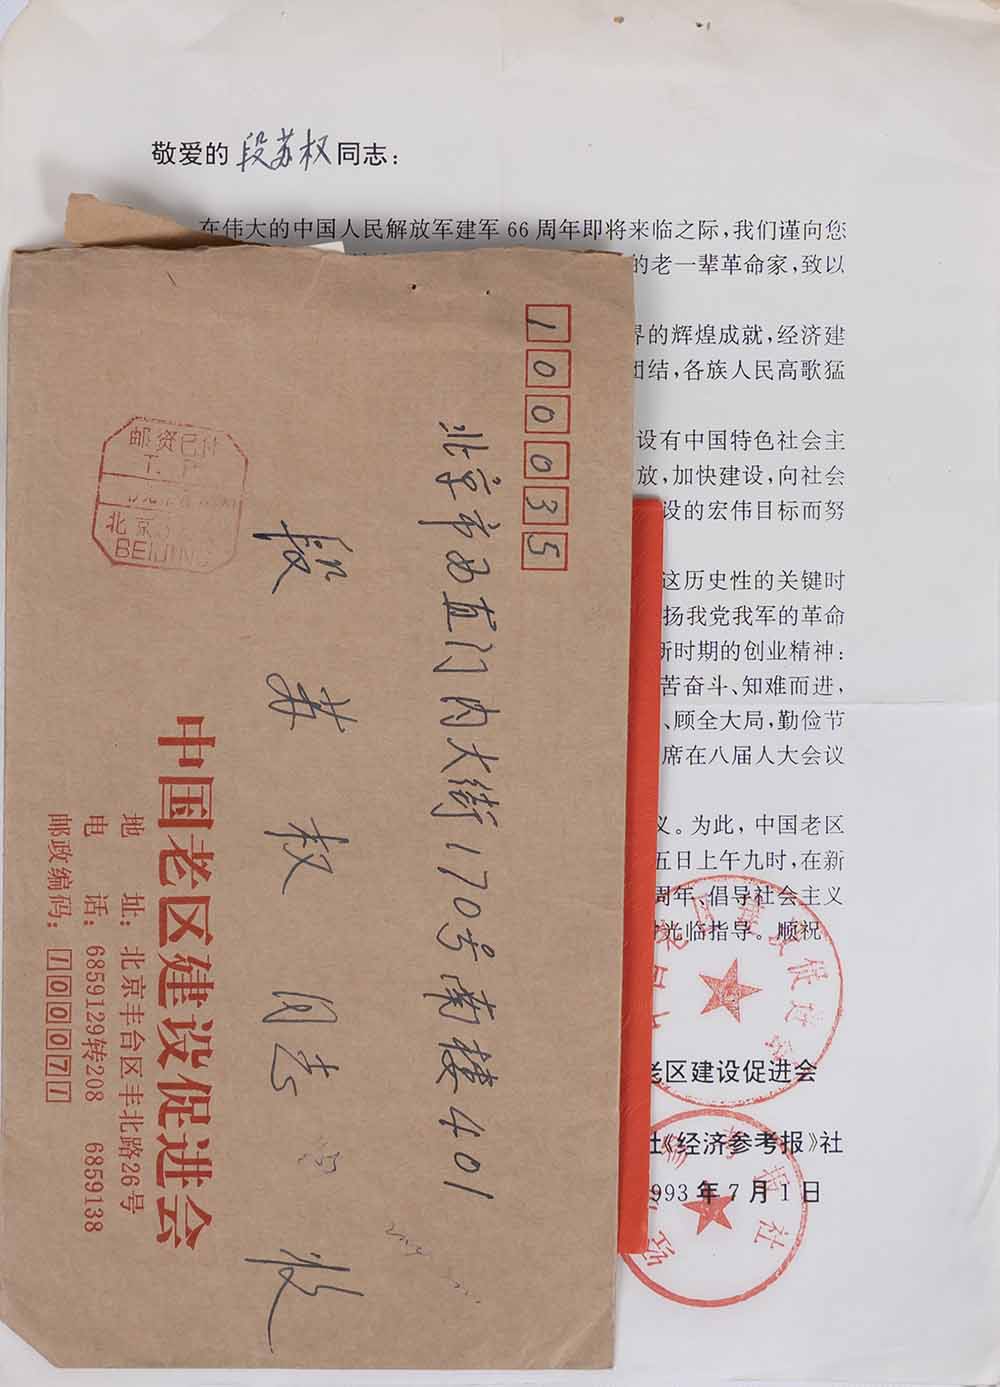 敬爱的段苏权同志：
在伟大的中国人民解放军建军66周年即将来临之际，我们谨向您
的老一辈革命家，致以
界的辉煌成就，经济建
团结，各族人民高歌猛
设有中国特色社会主
放，加快建设，向社会
设的宏伟目标而努
这历史性的关键时
扬我党我军的革命
新时期的创业精神：
苦奋斗、知难而进，
、顾全大局，勤俭节
席在八届人大会议
义。为此，中国老区
五日上午九时，在新
周年、倡导社会主义
光临指导。顺祝
老区建设促进会
社《经济参考报》社
1993年7月1日
老区建设促进会
参考报社
100035
北京市西直门内大街170号南楼401
段苏权同志收
邮资已付
北京
BEIJING
中国老区建设促进会
地址：北京丰台区丰北路26号
电话：6859129转208 6859138
邮政编码：100071